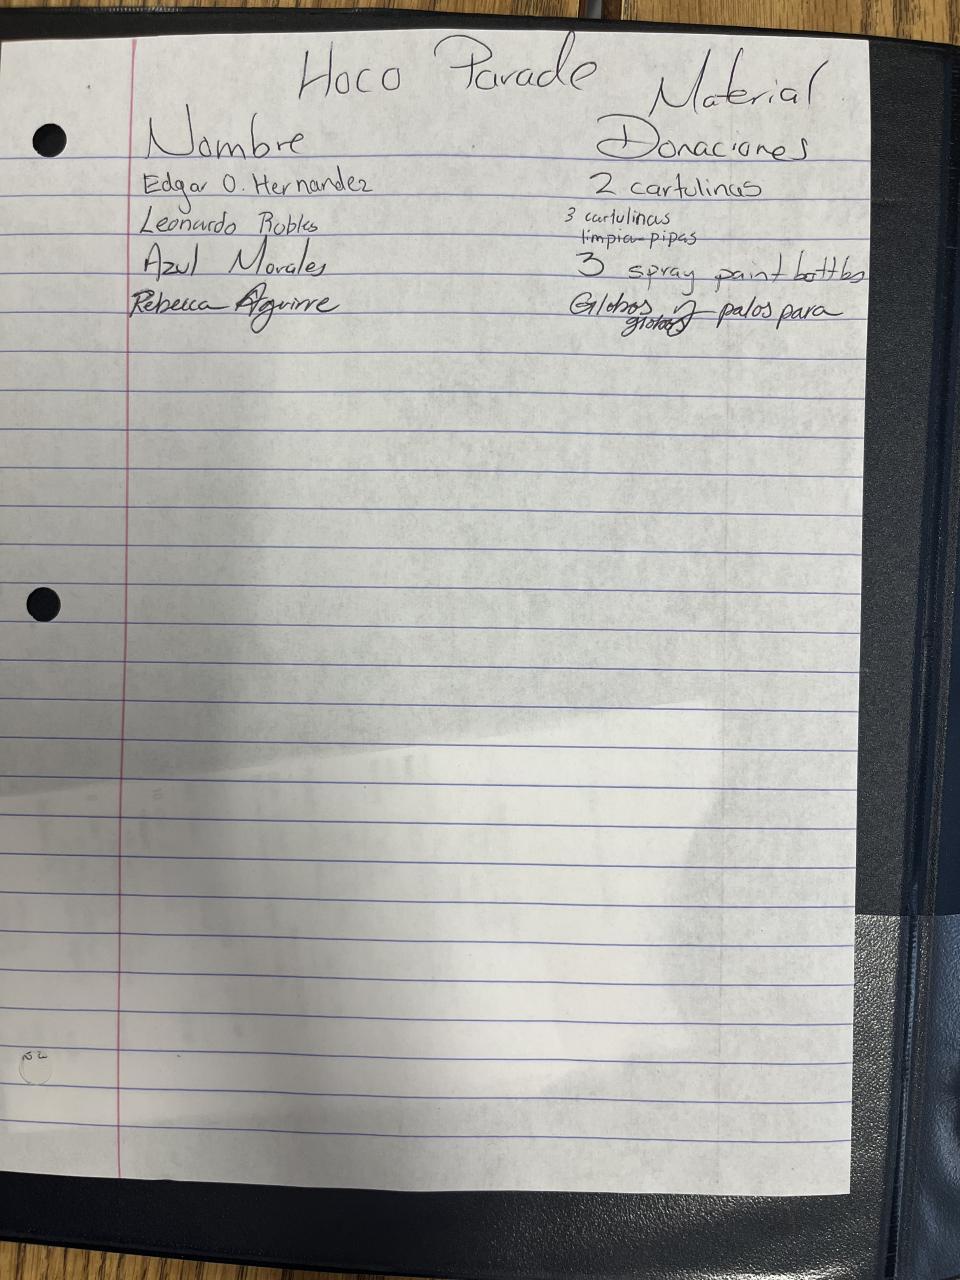 Hoco Parade
Material
Nombre Donaciones
Edgar O. Hernandez 2 cartulinas
Leonardo Robles 3 cartulinas
limpia-pipas
Azul Morales 3 spray paint bottles
Rebecca Aguirre Globos y palos para
globos